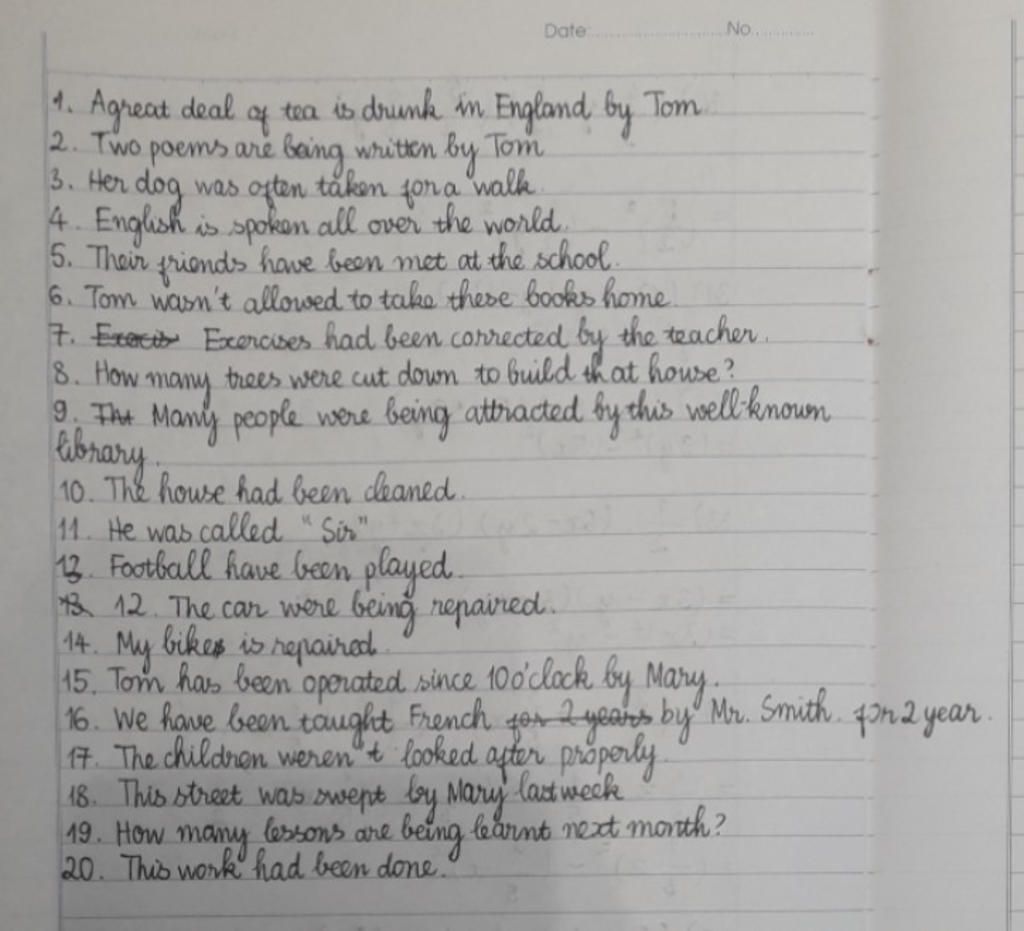 Date No
1. A great deal of tea is drunk in England by Tom
2. Two poems are being written by Tom
3. Her dog was often taken for a walk.
4. English is spoken all over the world.
5. Their friends have been met at the school.
6. Tom wasn't allowed to take these books home
7. Exercis Exercises had been corrected by the teacher.
8. How many trees were cut down to build that house?
9. Many people were being attracted by this well-known
library.
10. The house had been cleaned.
11. He was called "Sir"
13. Football have been played.
12. The car were being repaired.
14. My bike is repaired.
15. Tom has been operated since 10 o'clock by Mary.
16. We have been taught French for 2 years by Mr. Smith. for 2 year.
17. The children weren't looked after properly.
18. This street was swept by Mary last week
19. How many lessons are being learnt next month?
20. This work had been done.